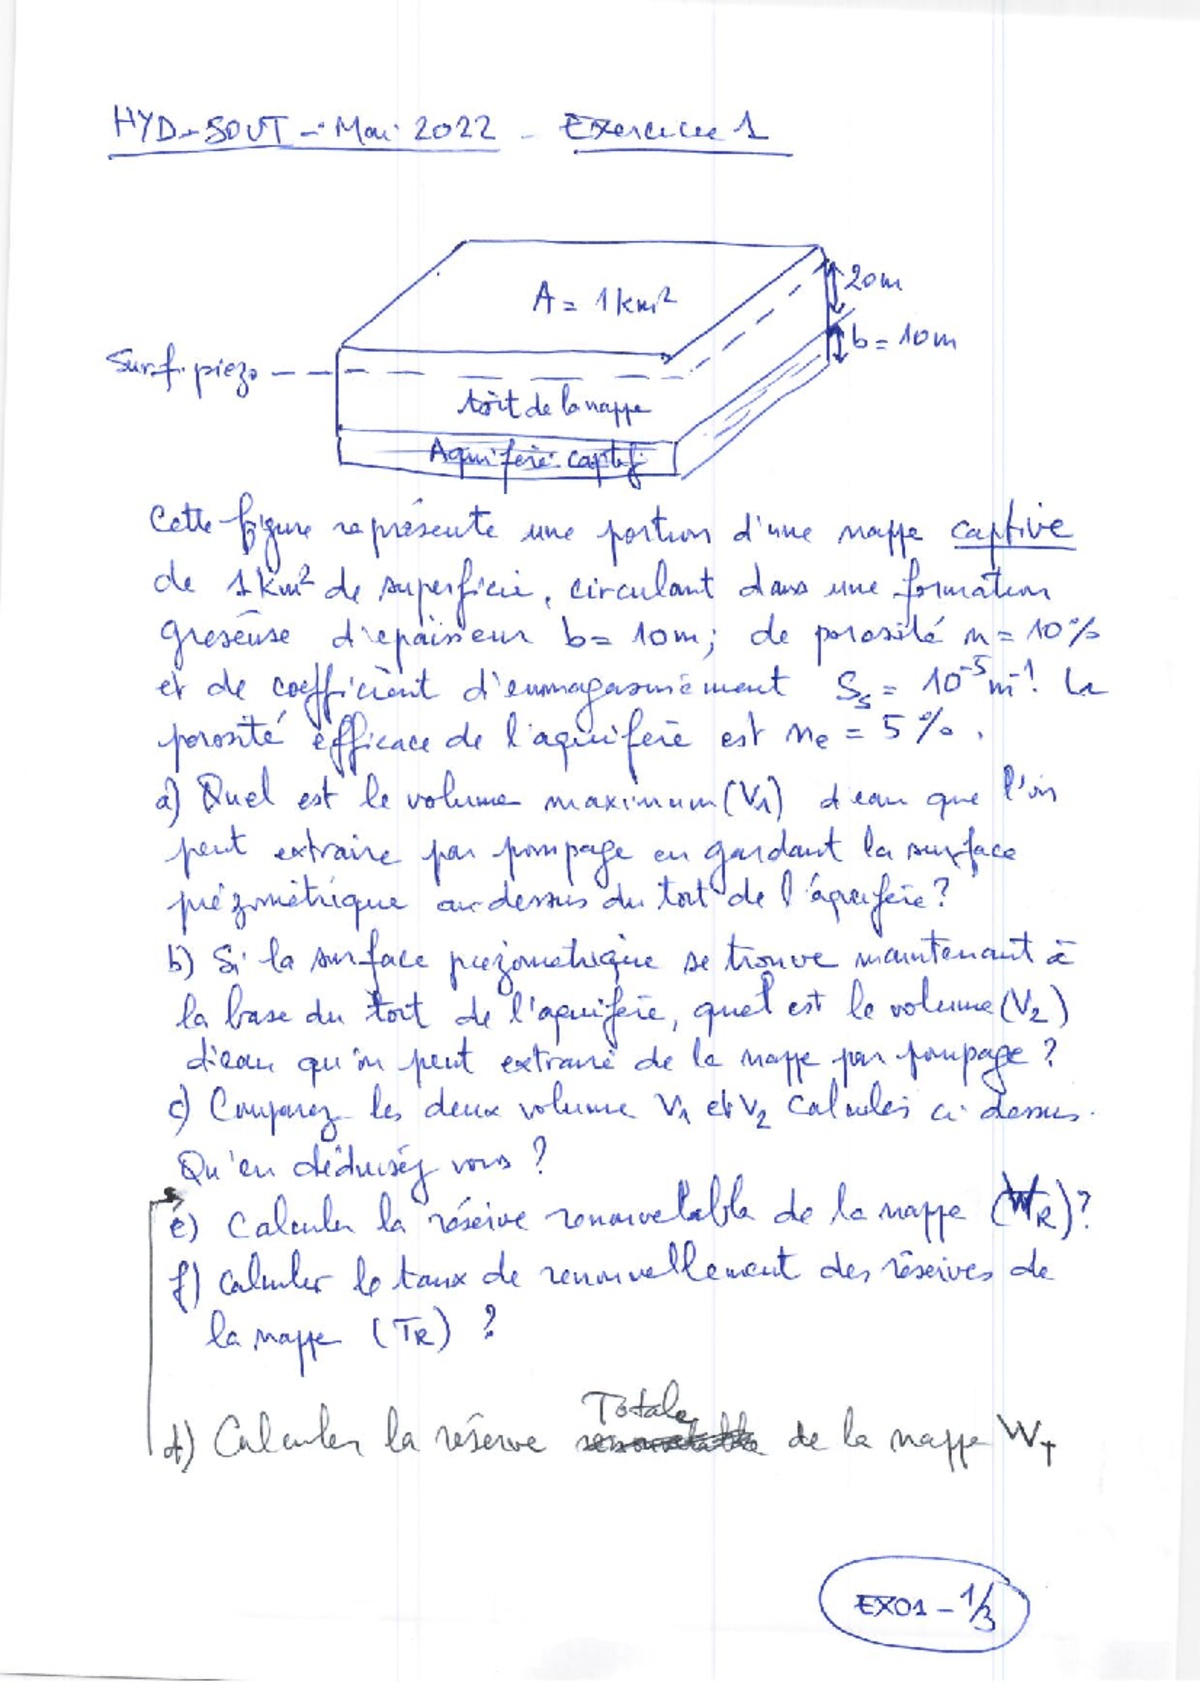 HYD-SOUT-Mai 2022 - Exercice 1
A = 1 km²
20m
b = 10m
Surf. piezo
toit de la nappe
Aquifère captif
Cette figure représente une portion d'une nappe captive
de 1km² de superficie, circulant dans une formation
greseuse d'epaisseur b= 10m; de porosité n= 10%
et de coefficient d'emmagasinement Ss = 10⁻⁵ m⁻¹. La
porosité efficace de l'aquifère est ne = 5%.
a) Quel est le volume maximum (V1) d'eau que l'on
peut extraire par pompage en gardant la surface
piézométrique au dessus du toit de l'aquifère?
b) Si la surface piezometrique se trouve maintenant à
la base du toit de l'aquifère, quel est le volume (V2)
d'eau qu'on peut extraire de la nappe par pompage?
c) Comparez les deux volume V1 et V2 calculés ci dessus.
Qu'en déduisez vous?
e) Calculer la réserve renouvelable de la nappe (WR)?
f) Calculer le taux de renouvellement des réserves de
la nappe (TR)?
Totale
d) Calculer la réserve de la nappe WT
EX01 - 1/3